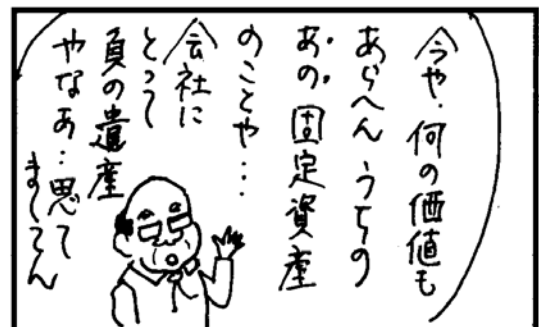 今や、何の価値も
あらへんうちの
あの固定資産
のことや…
会社に
とって
負の遺産
やなあ…思て
ましてん